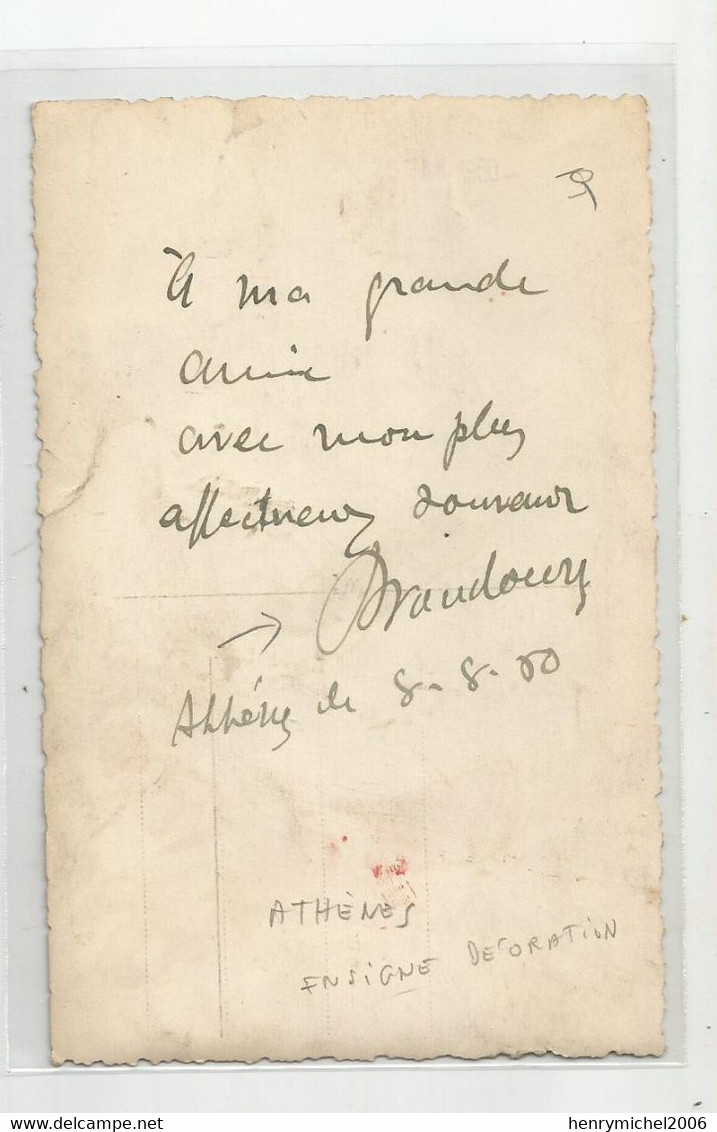 À ma grande
amie
avec mon plus
affectueux souvenir
Athènes le 8-8-50
ATHÈNES
ENSIGNE DECORATION
delcampe.net
henrymichel2006